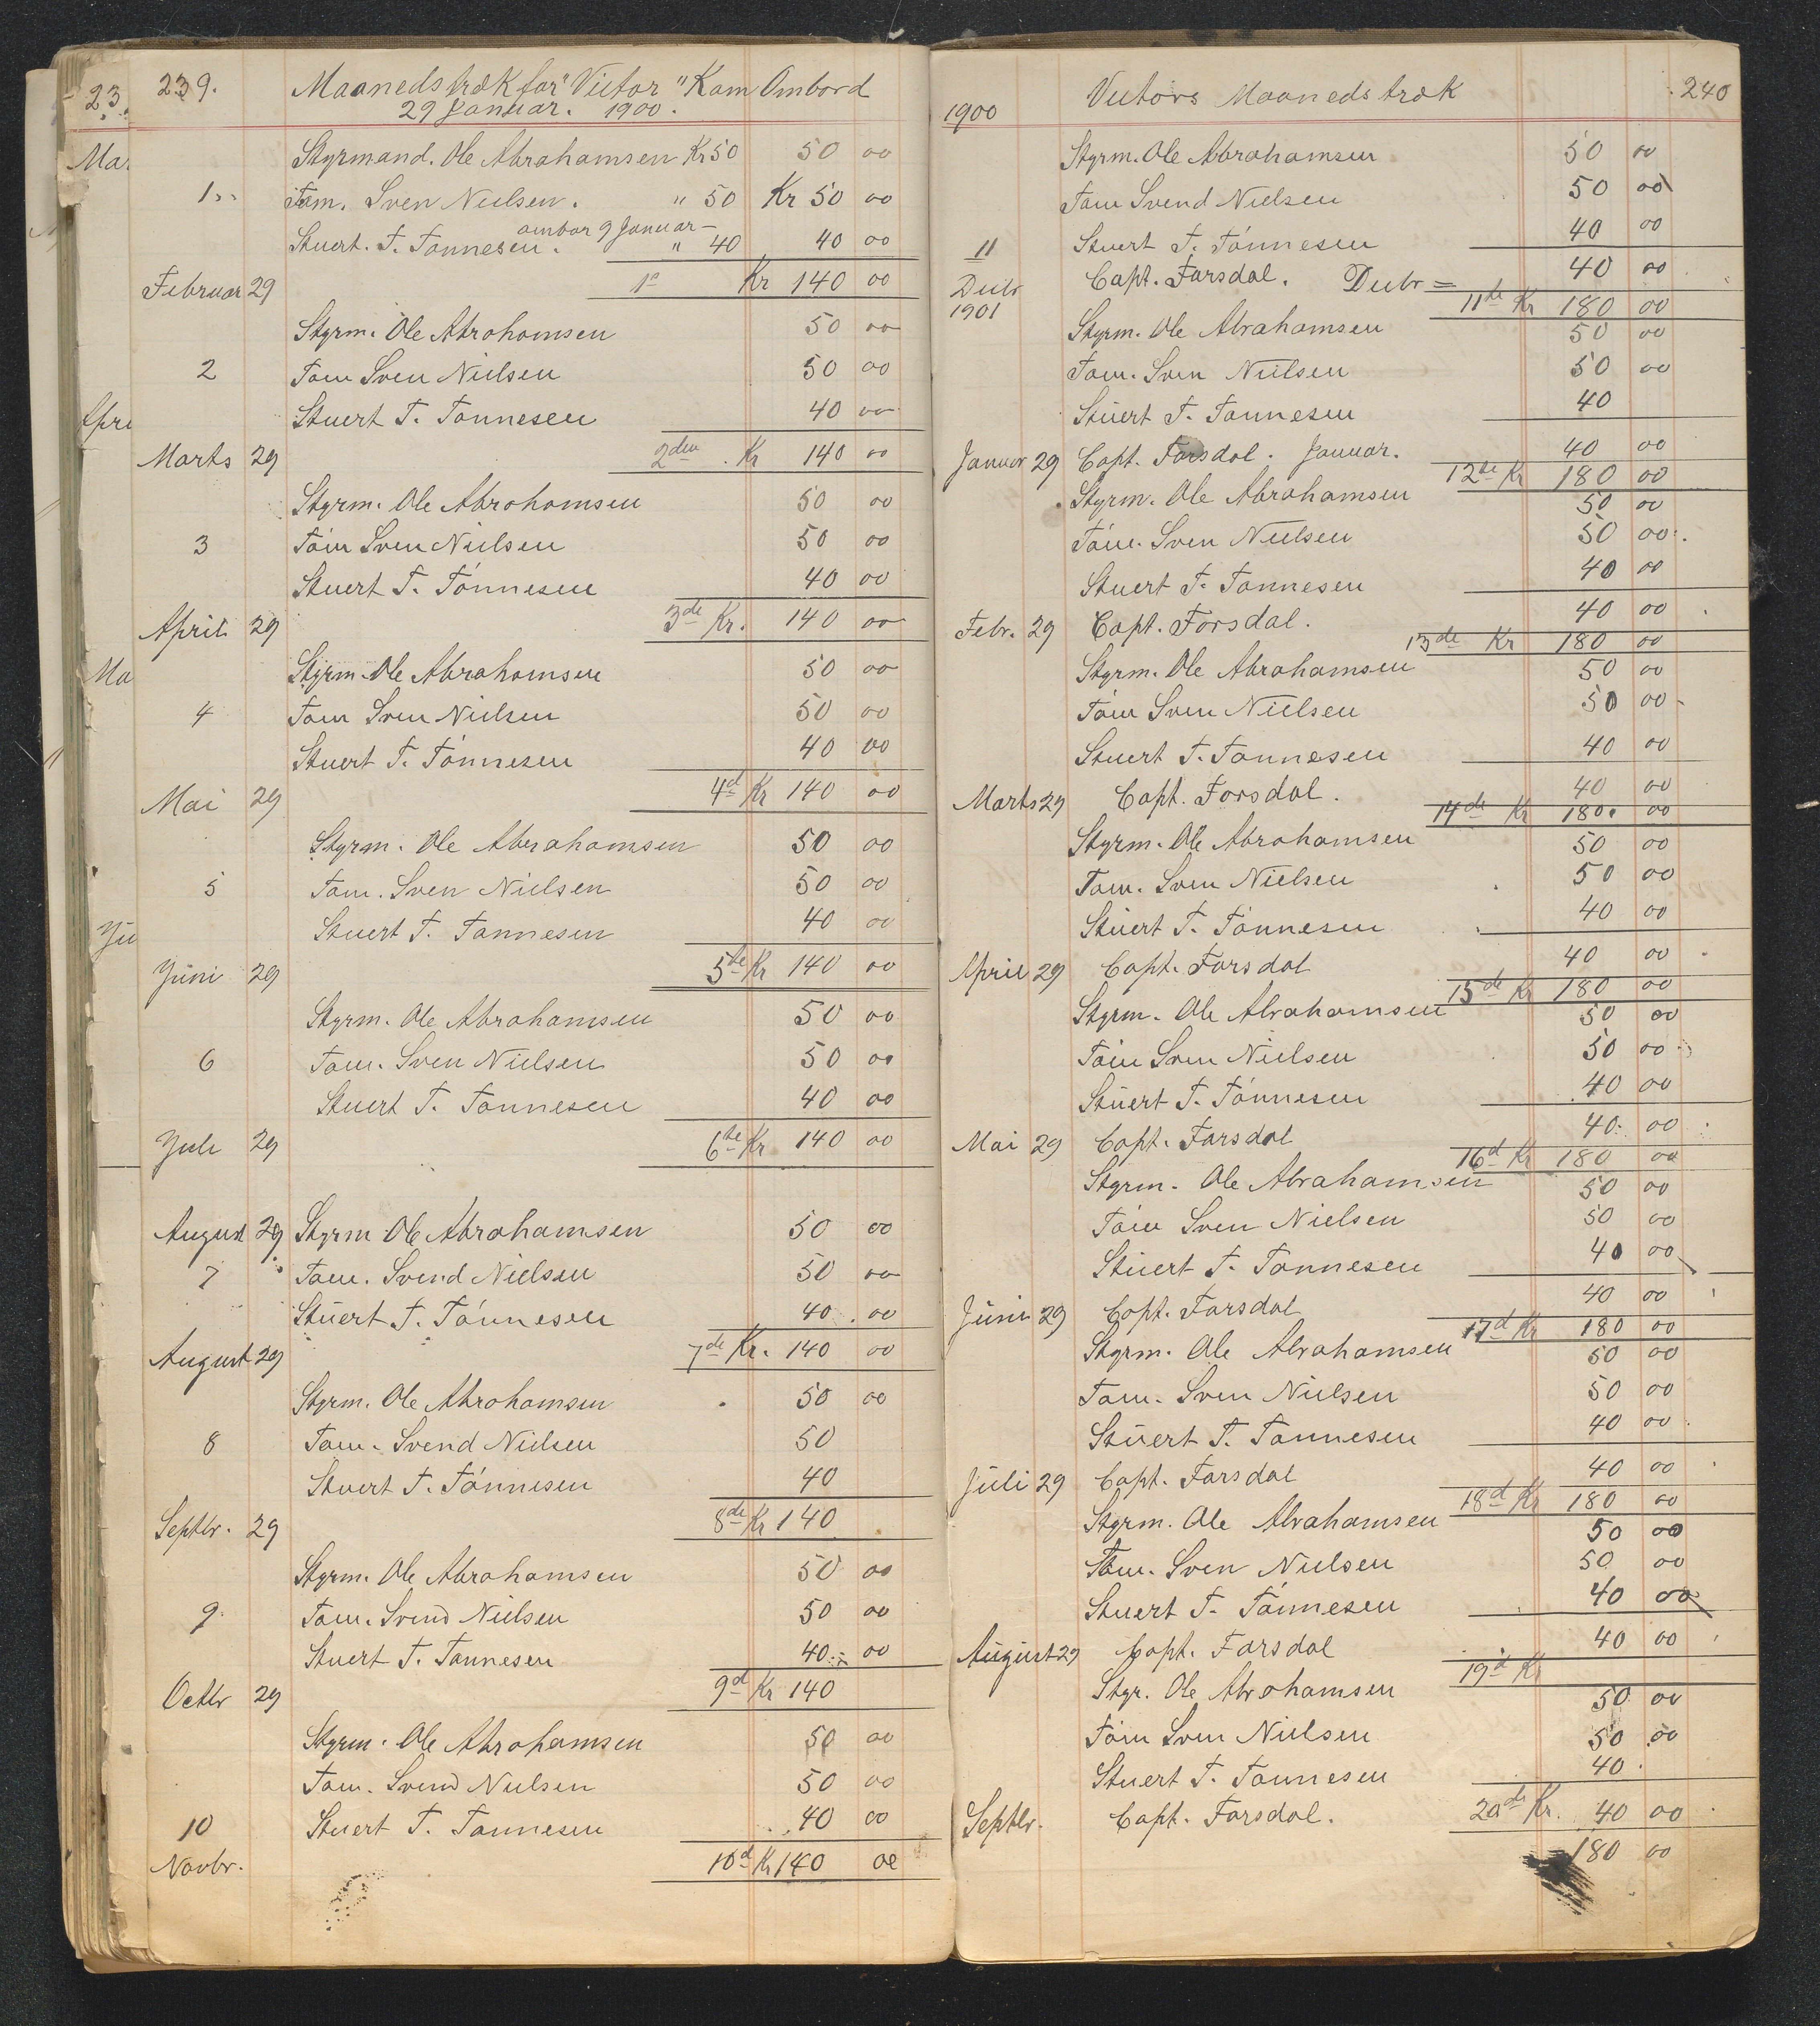 23.
Ma.
Apri
Ma
Ju
239. Maanedstræk for "Victor" Kom Ombord
29 Januar. 1900.
Styrmand. Ole Abrahamsen Kr 50 50 00
1. Tøm. Sven Nielsen. " 50 Kr 50 00
ombor 9 Januar
Stuert. T. Tonnesen. " 40 40 00
Februar 29 1ste Kr 140 00
Styrm. Ole Abrahamsen 50 00
2 Tøm Sven Nielsen 50 00
Stuert T. Tonnesen 40 00
Marts 29 2den Kr 140 00
Styrm. Ole Abrahamsen 50 00
3 Tøm Sven Nielsen 50 00
Stuert T. Tónnesen 40 00
April 29 3de Kr. 140 00
Styrm. Ole Abrahamsen 50 00
4 Tøm Sven Nielsen 50 00
Stuert T. Tónnesen 40 00
Mai 29 4d Kr 140 00
Styrm. Ole Abrahamsen 50 00
5 Tøm. Sven Nielsen 50 00
Stuert T. Tonnesen 40 00
Juni 29 5te Kr 140 00
Styrm. Ole Abrahamsen 50 00
6 Tøm. Sven Nielsen 50 00
Stuert T. Tonnesen 40 00
Juli 29 6te Kr 140 00
August 29 Styrm Ole Abrahamsen 50 00
7 Tøm. Svend Nielsen 50 00
Stuert T. Tónnesen 40 00
August 29 7de Kr. 140 00
Styrm. Ole Abrahamsen 50 00
8 Tøm. Svend Nielsen 50
Stuert T. Tónnesen 40
Septbr. 29 8de Kr 140
Styrm. Ole Abrahamsen 50 00
9 Tøm. Svend Nielsen 50 00
Stuert T. Tonnesen 40 00
Octbr 29 9d Kr 140
Styrm. Ole Abrahamsen 50 00
Tøm. Svend Nielsen 50 00
10 Stuert T. Tonnesen 40 00
Novbr. 10d Kr 140 00
1900 Victors Maanedstræk 240
Styrm. Ole Abrahamsen 50 00
Tøm Svend Nielsen 50 00
11 Stuert T. Tónnesen 40 00
Decbr Capt. Farsdal. Decbr 40 00
1901 11de Kr 180 00
Styrm. Ole Abrahamsen 50 00
Tøm. Sven Nielsen 50 00
Stuert T. Tonnesen 40
Januar 29 Capt. Farsdal. Januar. 40 00
12te Kr 180 00
Styrm. Ole Abrahamsen 50 00
Tøm. Sven Nielsen 50 00
Stuert T. Tonnesen 40 00
Febr. 29 Capt. Forsdal. 40 00
13de Kr 180 00
Styrm. Ole Abrahamsen 50 00
Tøm Sven Nielsen 50 00
Stuert T. Tonnesen 40 00
Marts 29 Capt. Forsdal. 40 00
14de Kr 180. 00
Styrm. Ole Abrahamsen 50 00
Tøm. Sven Nielsen 50 00
Stuert T. Tónnesen 40 00
April 29 Capt. Farsdal 40 00
15de Kr 180 00
Styrm. Ole Abrahamsen 50 00
Tøm Sven Nielsen 50 00
Stuert T. Tónnesen 40 00
Mai 29 Capt. Farsdal 40 00
16d Kr 180 00
Styrm. Ole Abrahamsen 50 00
Tøm Sven Nielsen 50 00
Stuert T. Tonnesen 40 00
Juni 29 Capt. Farsdal 40 00
17d Kr 180 00
Styrm. Ole Abrahamsen 50 00
Tøm. Sven Nielsen 50 00
Stuert T. Tonnesen 40 00
Juli 29 Capt. Farsdal 40 00
18d Kr 180 00
Styrm. Ole Abrahamsen 50 00
Tøm. Sven Nielsen 50 00
Stuert T. Tónnesen 40 00
August 29 Capt. Farsdal 40 00
19d Kr
Styr. Ole Abrahamsen 50 00
Tøm Sven Nielsen 50 00
Stuert T. Tonnesen 40
Septbr. Capt. Farsdal. 20de Kr. 40 00
180 00